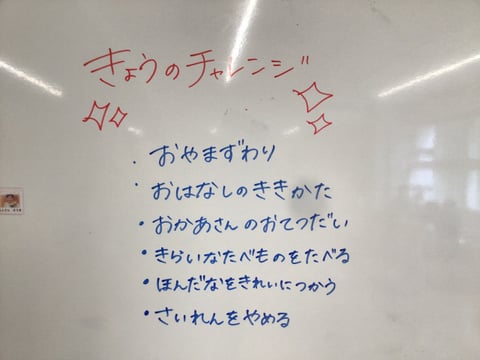 きょうのチャレンジ
・おやまずわり
・おはなしのききかた
・おかあさんのおてつだい
・きらいなたべものをたべる
・ほんだなをきれいにつかう
・さいれんをやめる